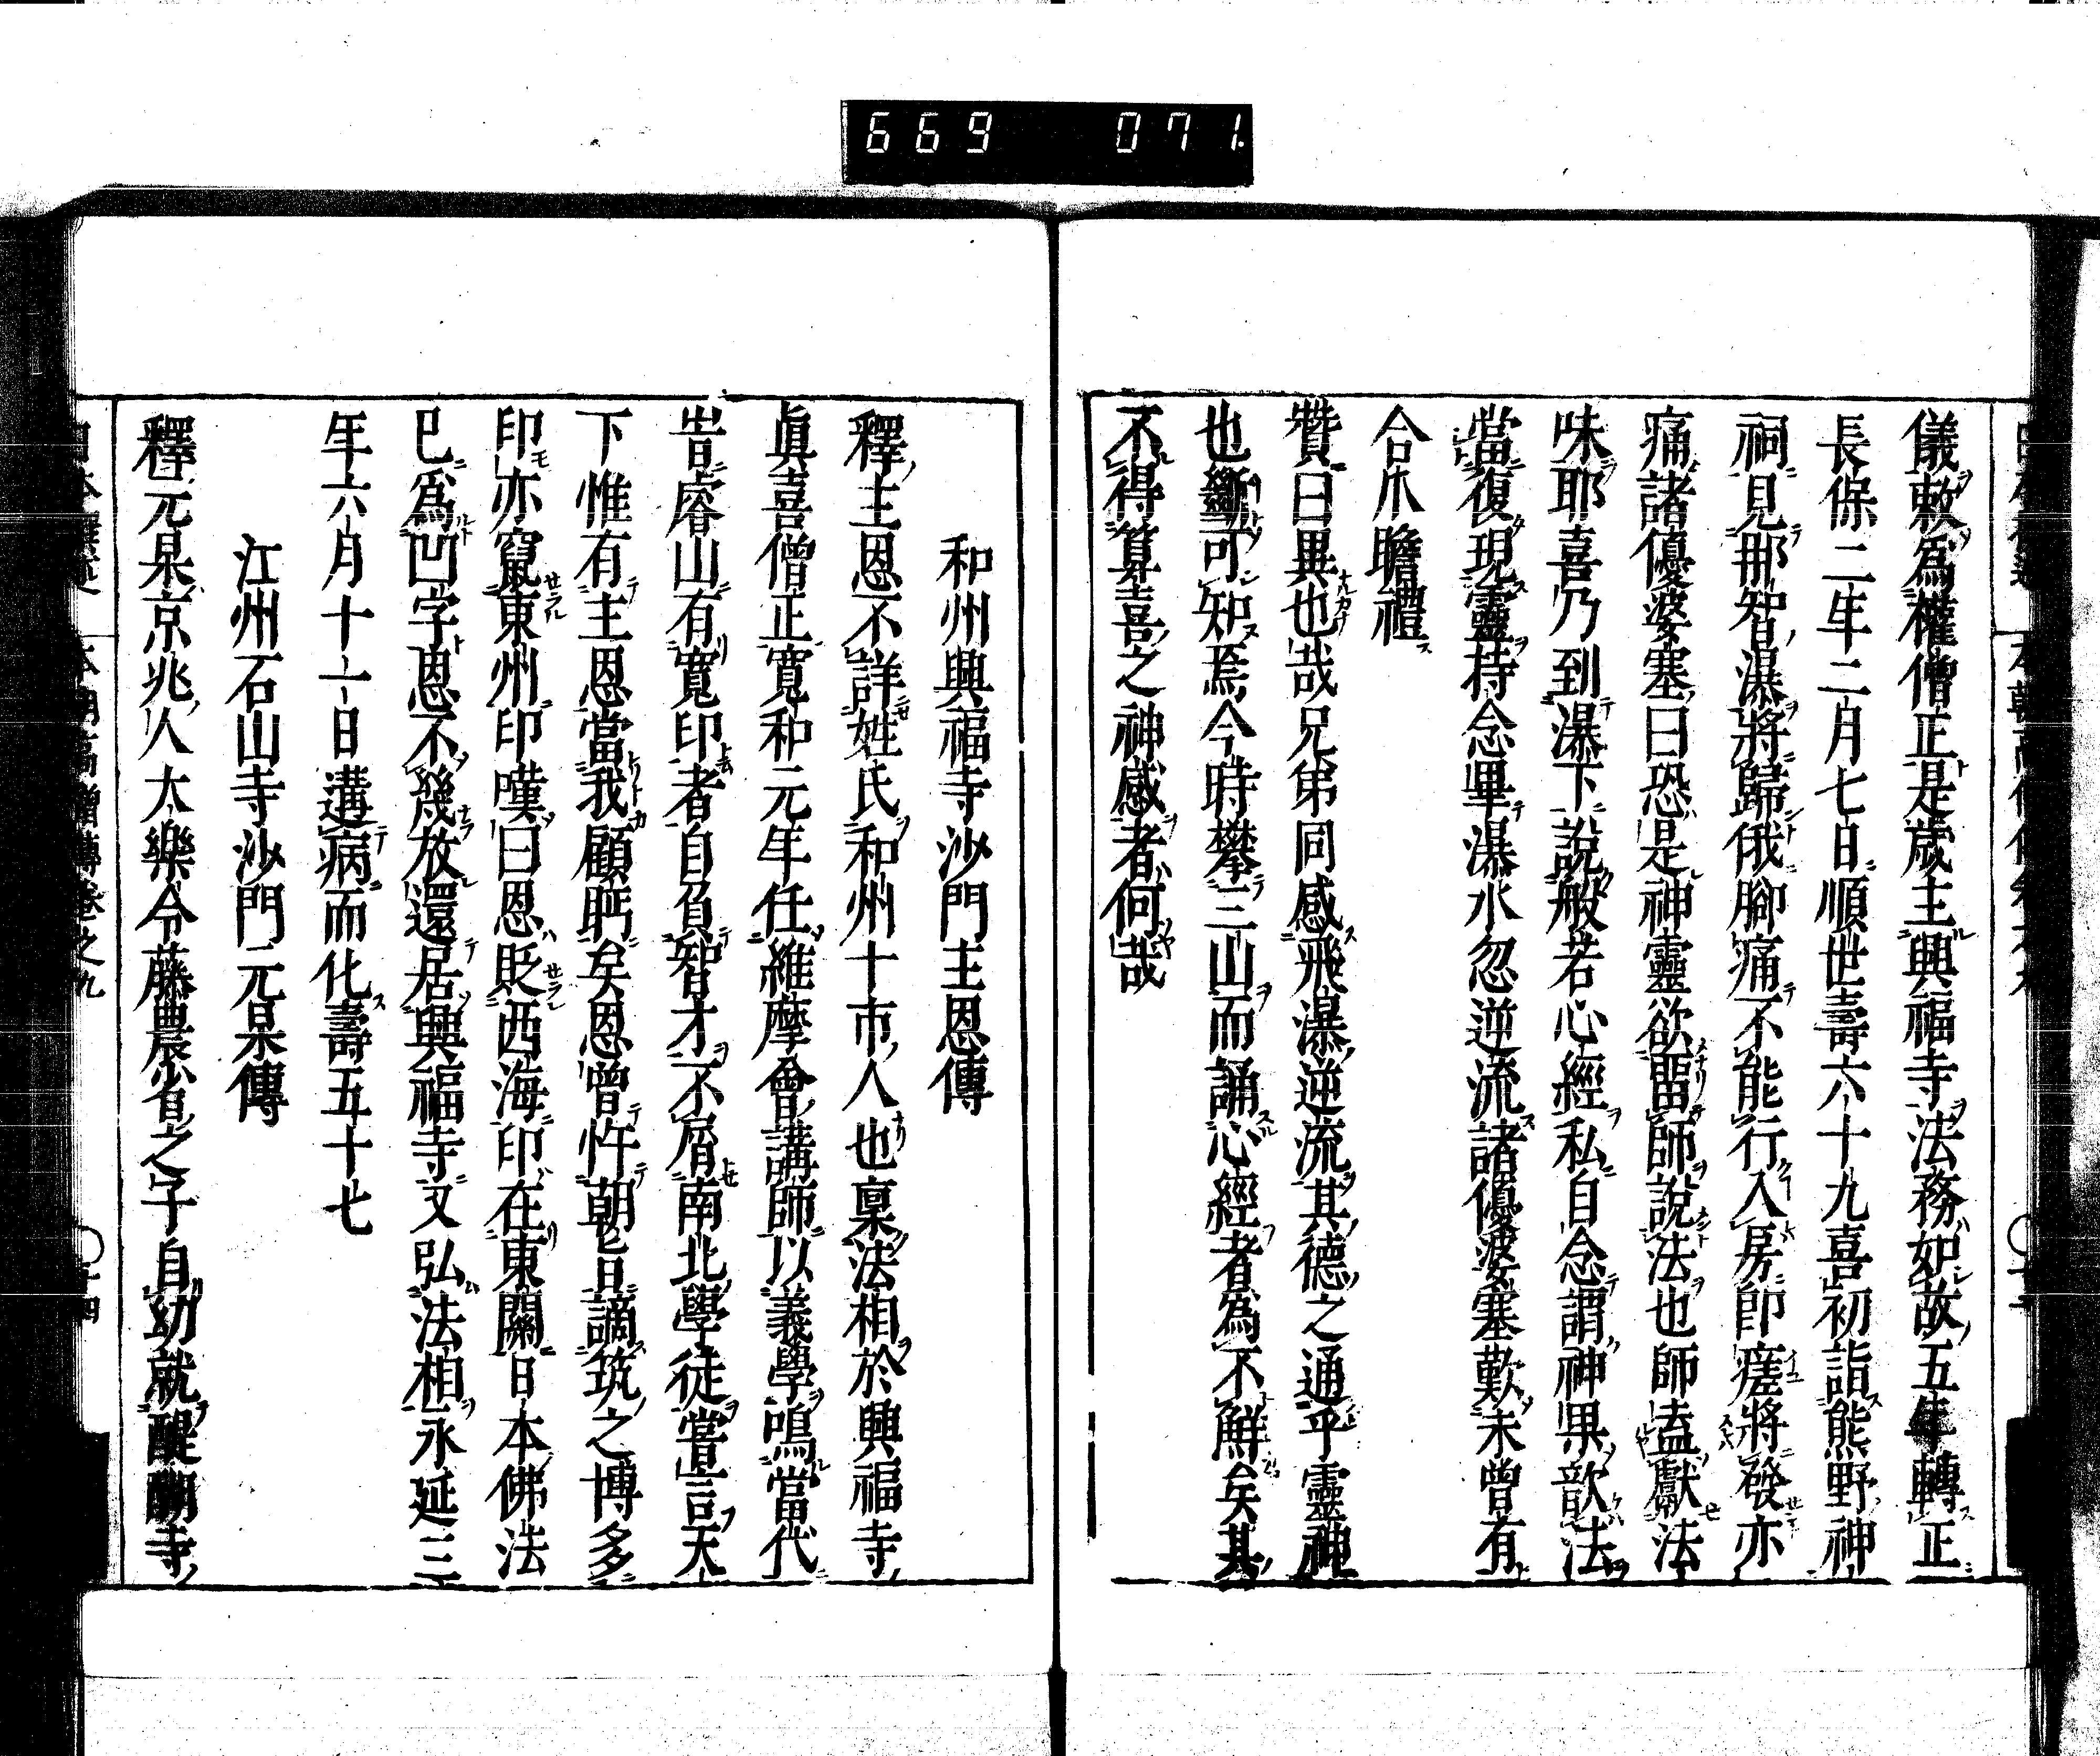 669 071
儀敕爲權僧正是歲主興福寺法務如故五年轉正
長保二年二月七日順世壽六十九喜初詣熊野神
祠見那智瀑將歸俄腳痛不能行入房卽瘥將發亦
痛諸優婆塞曰恐是神靈欲畱師說法也師盍獻法
味耶喜乃到瀑下說般若心經私自念謂神果歆法
當復現靈持念畢瀑水忽逆流諸優婆塞歎未曾有
合爪瞻禮
贊曰異也哉兄弟同感飛瀑逆流其德之通乎靈神
也斷可知焉今時攀三山而誦心經者爲不鮮矣其
不得算喜之神感者何哉
和州興福寺沙門主恩傳
釋主恩不詳姓氏和州十市人也稟法相於興福寺
眞喜僧正寬和元年任維摩會講師以義學鳴當代
昔睿山有寬印者自負智才不屑南北學徒嘗言天
下惟有主恩當我顧眄矣恩曾忤朝旨謫筑之博多
印亦竄東州印嘆曰恩貶西海印在東關日本佛法
已爲凹字恩不幾放還居興福寺又弘法相永延三
年六月十一日遘病而化壽五十七
江州石山寺沙門元杲傳
釋元杲京兆人大樂令藤晨省之子自幼就醍醐寺
本朝高僧傳卷之九